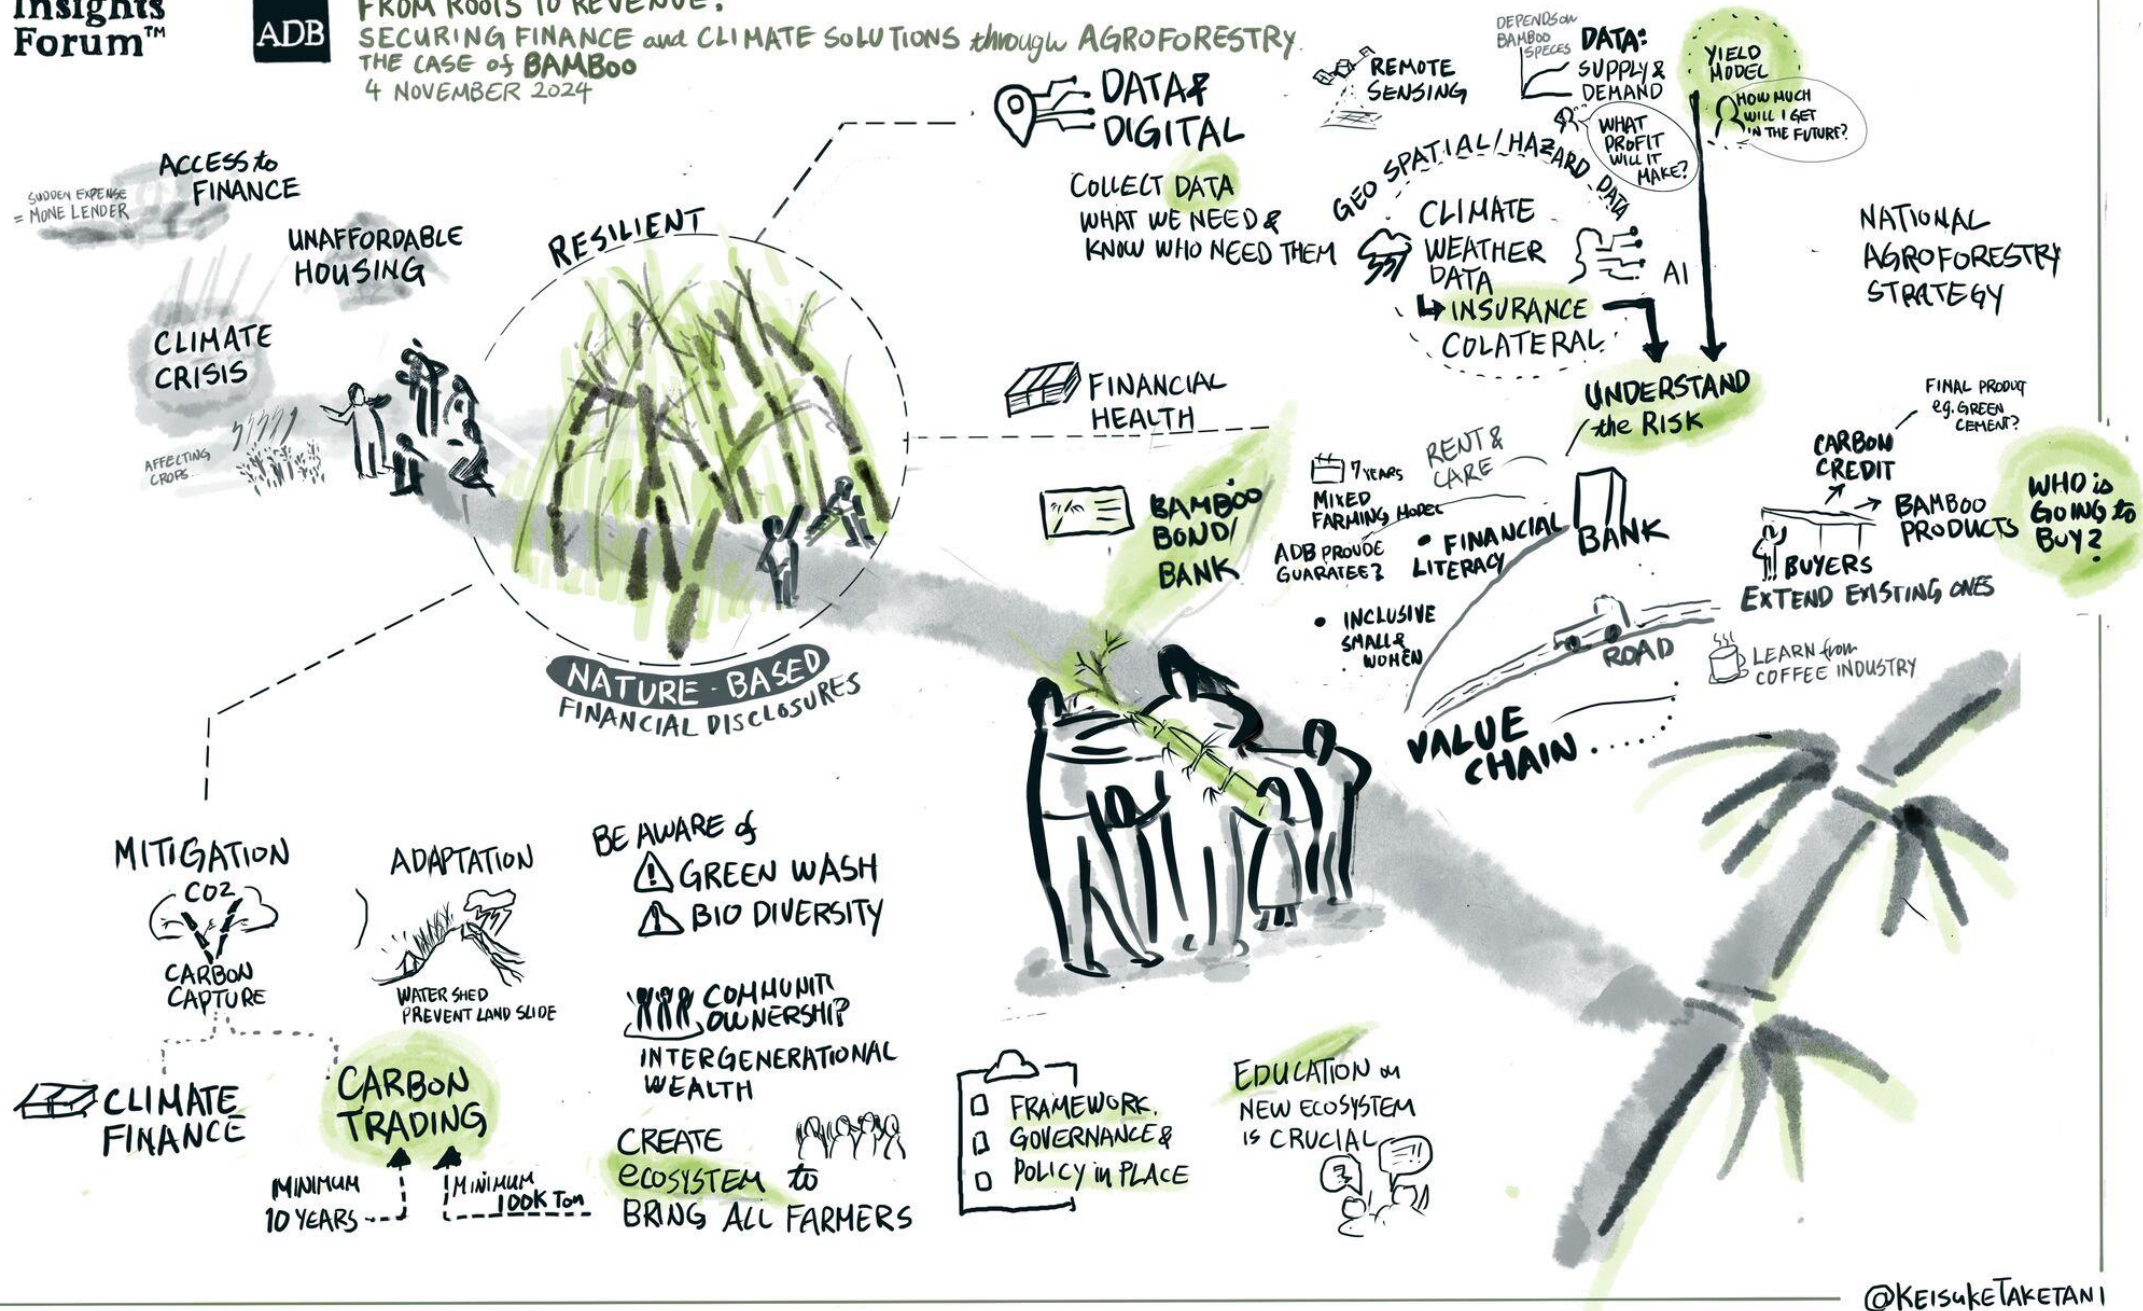 Insights
Forum™
ADB
FROM ROOTS TO REVENUE:
SECURING FINANCE and CLIMATE SOLUTIONS through AGROFORESTRY.
THE CASE of BAMBOO
4 NOVEMBER 2024
ACCESS to
FINANCE
SUDDEN EXPENSE
= MONE LENDER
UNAFFORDABLE
HOUSING
CLIMATE
CRISIS
AFFECTING
CROPS...
RESILIENT
NATURE-BASED
FINANCIAL DISCLOSURES
DATA &
DIGITAL
COLLECT DATA
WHAT WE NEED &
KNOW WHO NEED THEM
REMOTE
SENSING
DEPENDS on
BAMBOO
SPECES
DATA:
SUPPLY &
DEMAND
WHAT
PROFIT
WILL IT
MAKE?
YIELD
MODEL
HOW MUCH
WILL I GET
IN THE FUTURE?
GEO SPATIAL/HAZARD DATA
CLIMATE
WEATHER
DATA
INSURANCE
COLATERAL
AI
UNDERSTAND
the RISK
NATIONAL
AGROFORESTRY
STRATEGY
FINANCIAL
HEALTH
BAMBOO
BOND/
BANK
7 YEARS
MIXED
FARMING MODEL
ADB PROVDE
GUARATEE?
RENT &
CARE
• FINANCIAL
LITERACY
• INCLUSIVE
SMALL &
WOMEN
BANK
ROAD
VALUE
CHAIN
FINAL PRODUCT
eg. GREEN
CEMENT?
CARBON
CREDIT
BAMBOO
PRODUCTS
BUYERS
EXTEND EXISTING ONES
WHO is
GOING to
BUY?
LEARN from
COFFEE INDUSTRY
MITIGATION
CO2
CARBON
CAPTURE
ADAPTATION
WATER SHED
PREVENT LAND SLIDE
CLIMATE
FINANCE
CARBON
TRADING
MINIMUM
10 YEARS
MINIMUM
100K Ton
BE AWARE of
GREEN WASH
BIO DIVERSITY
COMMUNITY
OWNERSHIP
INTERGENERATIONAL
WEALTH
CREATE
ecosystem to
BRING ALL FARMERS
FRAMEWORK,
GOVERNANCE &
POLICY in PLACE
EDUCATION on
NEW ECOSYSTEM
IS CRUCIAL
@KEISUKETAKETANI